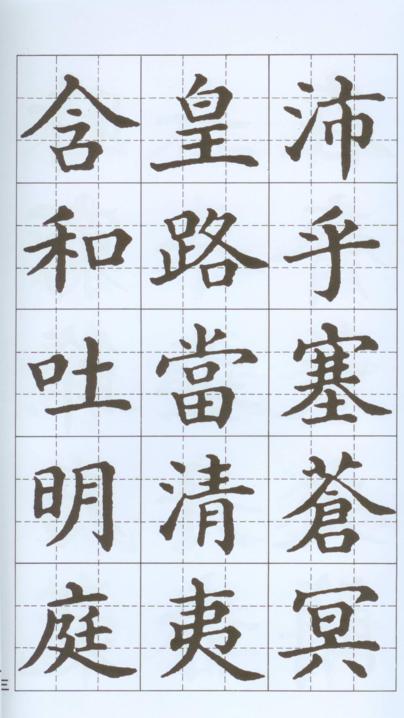 沛乎塞蒼冥
皇路當清夷
含和吐明庭
三